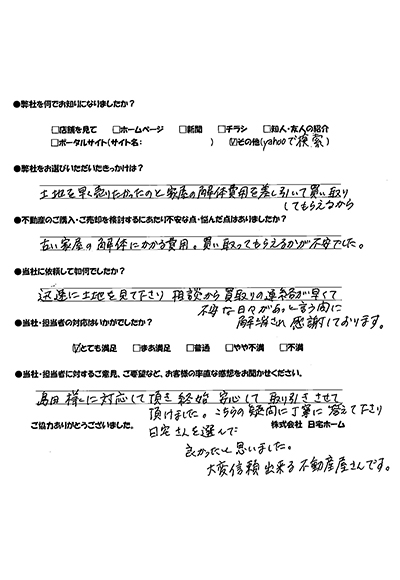 ●弊社を何でお知りになりましたか？
□店舗を見て　□ホームページ　□新聞　□チラシ　□知人・友人の紹介
□ポータルサイト(サイト名：　　　　　　　　)　☑その他(yahooで検索)
●弊社をお選びいただいたきっかけは？
土地を早く売りたかったのと家屋の解体費用を差し引いて買い取り
してもらえるから
●不動産のご購入・ご売却を検討するにあたり不安な点・悩んだ点はありましたか？
古い家屋の解体にかかる費用。買い取ってもらえるかが不安でした。
●当社に依頼して如何でしたか？
迅速に土地を見て下さり 相談から買取りの連絡が早くて
不安な日々があっと言う間に
解消され 感謝しております。
●当社・担当者の対応はいかがでしたか？
☑とても満足　□まあ満足　□普通　□やや不満　□不満
●当社・担当者に対するご意見、ご要望など、お客様の率直な感想をお聞かせください。
島田様に対応して頂き終始 安心して取り引きさせて
頂けました。こちらの疑問に丁寧に答えて下さり
ご協力ありがとうございました。　日宅さんを選んで　株式会社　日宅ホーム
良かったと思いました。
大変信頼出来る不動産屋さんです。